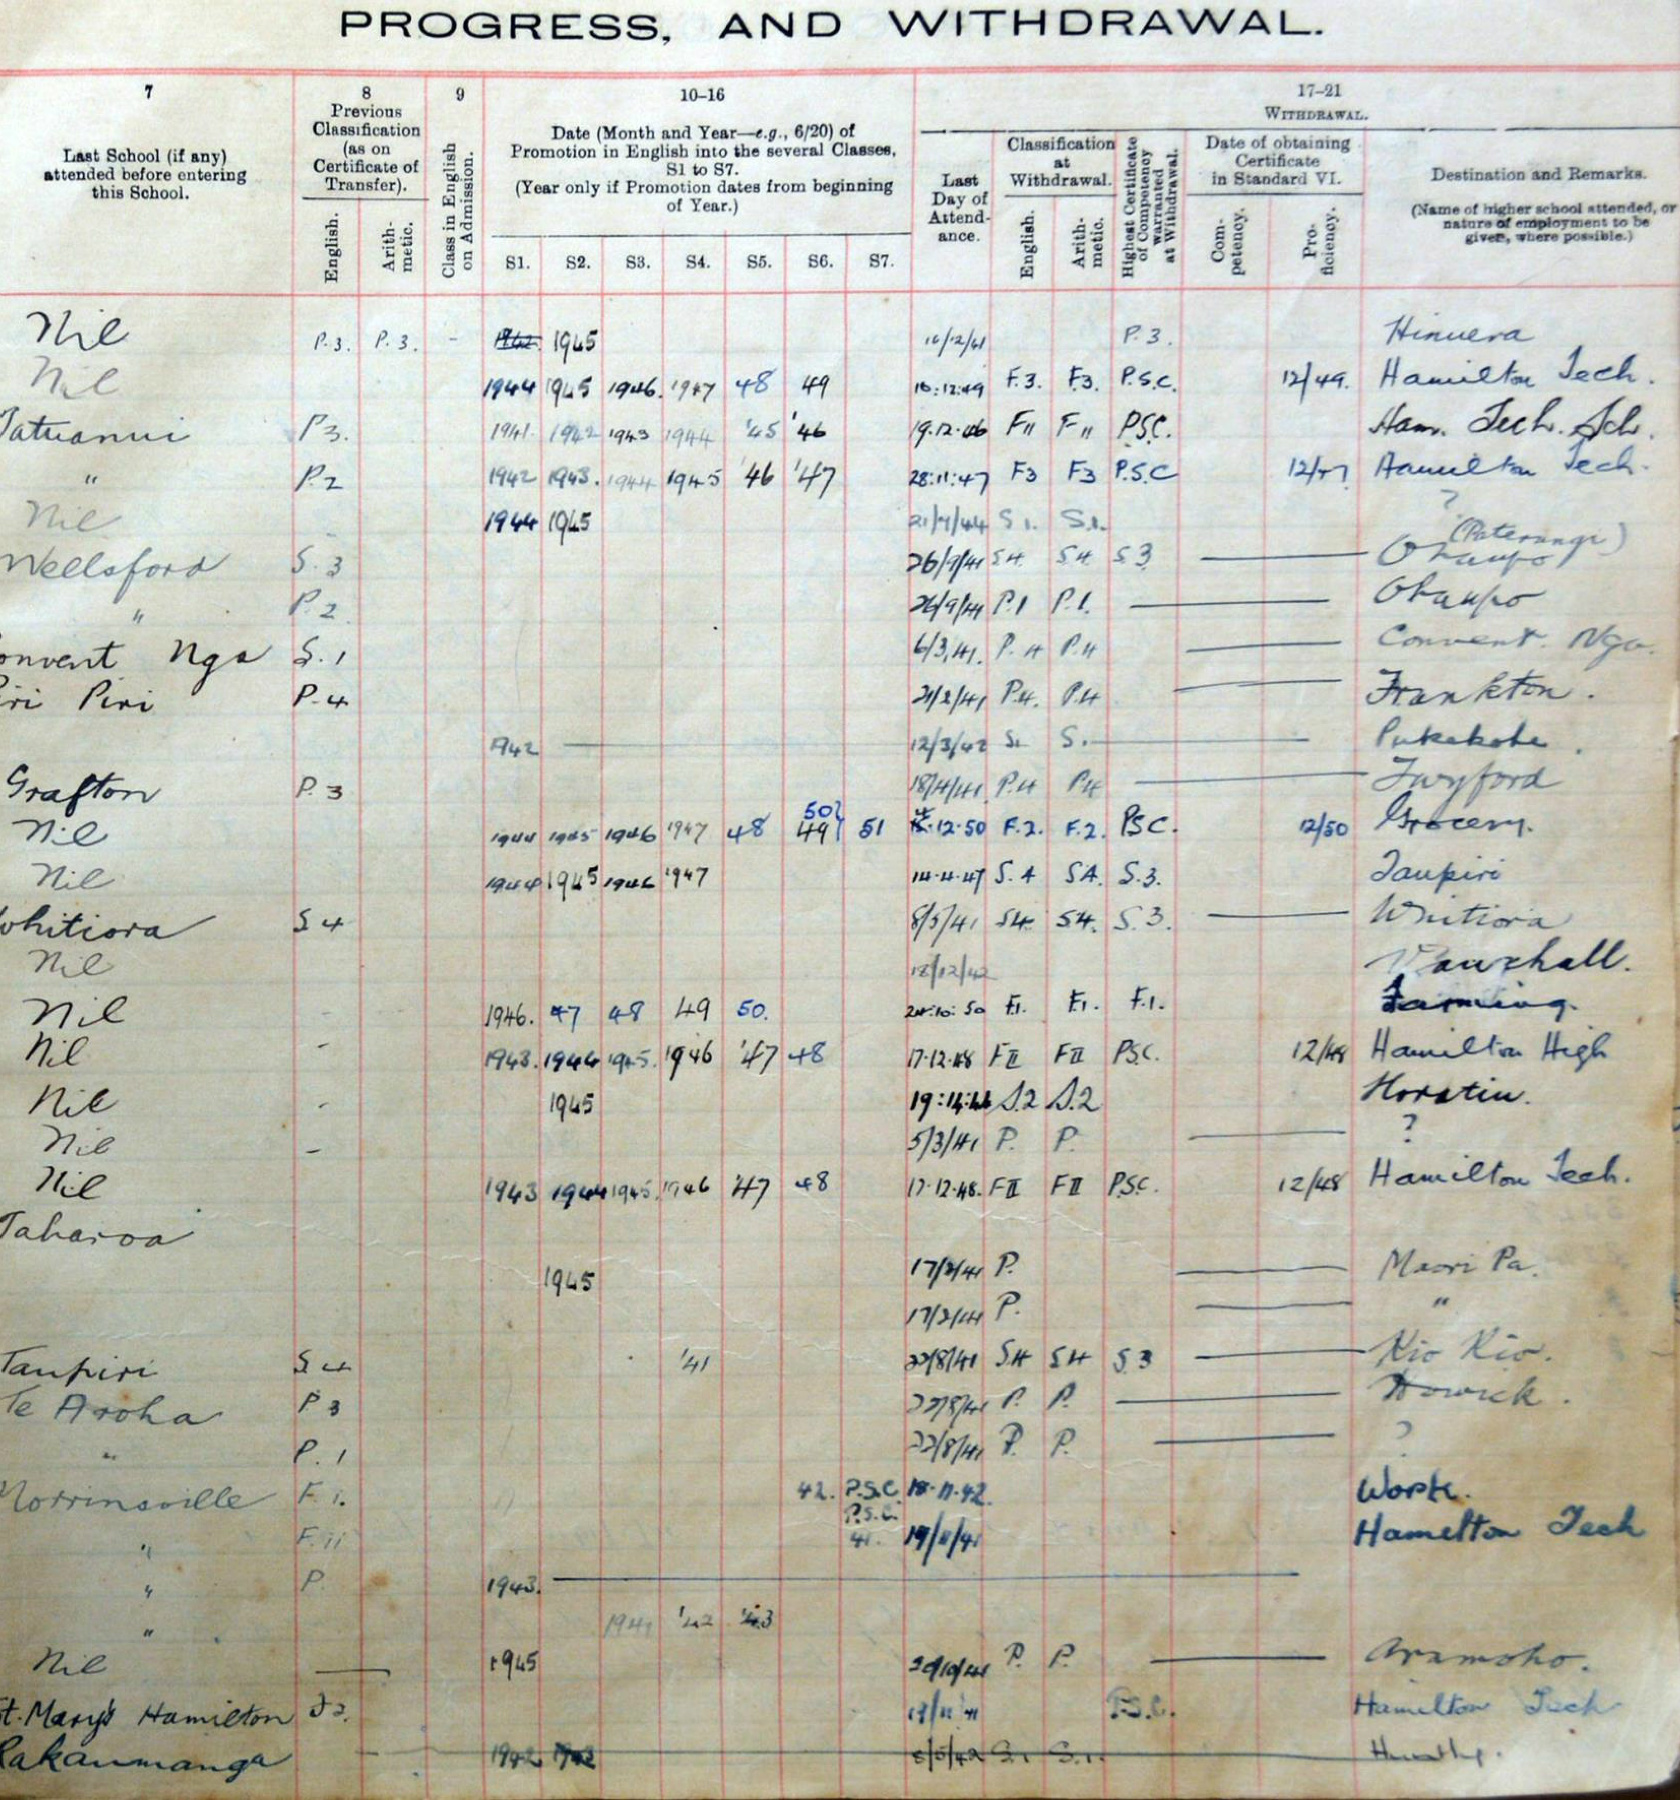 PROGRESS, AND WITHDRAWAL.
7 8 9 10–16 17–21
Last School (if any) attended before entering this School.
Previous Classification (as on Certificate of Transfer).
English. Arithmetic.
Class in English on Admission.
Date (Month and Year—e.g., 6/20) of Promotion in English into the several Classes, S1 to S7.
(Year only if Promotion dates from beginning of Year.)
S1. S2. S3. S4. S5. S6. S7.
WITHDRAWAL.
Last Day of Attendance.
Classification at Withdrawal.
English. Arithmetic.
Highest Certificate of Competency warranted at Withdrawal.
Date of obtaining Certificate in Standard VI.
Competency. Proficiency.
Destination and Remarks.
(Name of higher school attended, or nature of employment to be given, where possible.)
Nil P.3. P.3. - 1945 P.3. Hinuera
Nil 1944 1945 1946. 1947 48 49 16:12:49 F.3. F.3. P.S.C. 12/49. Hamilton Tech.
Tatuanui P3. 1941. 1942 1943 1944 '45 '46 19.12.46 F11 F11 P.S.C. Ham. Tech. Sch.
" P.2 1942 1943. 1944 1945 '46 '47 28:11:47 F3 F3 P.S.C 12/47 Hamilton Tech.
Nil 1944 1945 S1. S.1. ?
Wellsford S.3 26/9/41 S4. S4. S3 Ohaupo (Paterangi)
" P.2 26/9/41 P.1 P.1. Ohaupo
onvent Nga S.1 6/3/41. P.4 P.4 Convent. Nga.
iri Piri P.4 21/2/41 P.4. P.4 Frankton.
1942 12/3/42 S1 S. Pukekohe.
Grafton P.3 18/4/41 P.4 P4 Twyford
Nil 1944 1945 1946 1947 48 49 50 51 12.50 F.2. F.2. P.S.C. 12/50 Grocery.
Nil 1944 1945 1946 1947 S.4 S4. S.3. Taupiri
Whitiora S4 8/5/41 S4. S4. S.3. Whitiora
Nil 18/12/42 Vauxhall.
Nil 1946. 47 48 49 50. 24:10:50 F.1. F.1. F.1. Farming.
Nil - 1943. 1944 1945. 1946 '47 48 17.12.48 FII FII P.S.C. 12/48 Hamilton High
Nil - 1945 S.2 S.2 Horotiu.
Nil - 5/3/41 P. P. ?
Nil 1943 1944 1945. 1946 '47 48 17.12.48. FII FII P.S.C. 12/48 Hamilton Tech.
Taharoa
1945 17/2/41 P. Maori Pa.
17/2/41 P. "
Taupiri S4 '41 22/8/41 S4 S4 S3 Kio Kio.
Te Aroha P3 22/8/41 P. P. Howick.
" P.1 22/8/41 P. P. ?
Morrinsville F.1. 42. P.S.C. 18.11.42. Work.
" F.11 P.S.C. 41. 19/11/41 Hamilton Tech
" P. 1943.
" 1941 '42 '43
Nil 1945 P. P. Aramoho.
t. Mary's Hamilton Hamilton Tech
Rakaumanga 1942 8/5/42 S.1 S.1. Huntly.